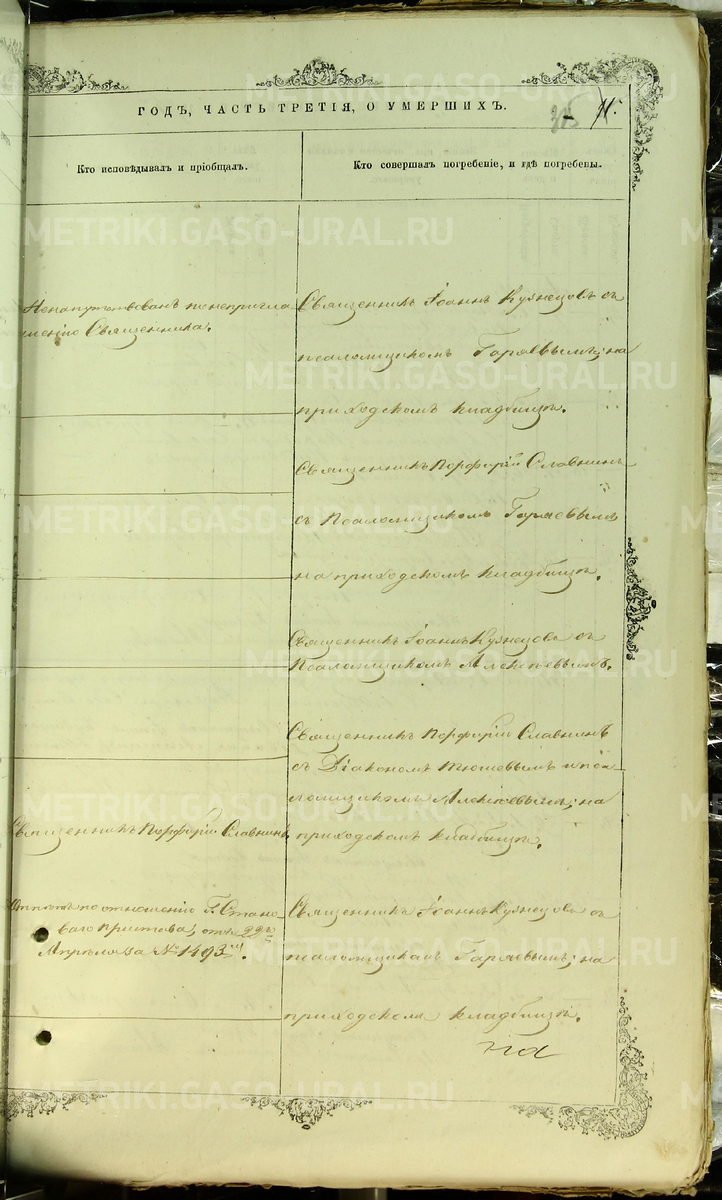 ГОДЪ, ЧАСТЬ ТРЕТІЯ, О УМЕРШИХЪ.
Кто исповѣдывалъ и пріобщалъ.
Кто совершалъ погребеніе, и гдѣ погребены.
Ненапутствованъ понепригла
шенію Священника.
Священникъ Іоаннъ Кузнецовъ съ
псаломщикомъ Гаряевымъ; на
приходскомъ кладбищѣ.
Священникъ Порфирій Славнинъ
съ Псаломщикомъ Гаряевымъ
на приходскомъ кладбищѣ.
Священникъ Іоаннъ Кузнецовъ съ
Псаломщикомъ Алексѣевымъ.
Священникъ Порфирій Славнинъ
съ Діакономъ Тюшевымъ и пса-
ломщикомъ Алексѣевымъ; на
Священникъ Порфирій Славнинъ
приходскомъ кладбищѣ.
Отпѣтъ по отношенію Г. Стано-
ваго Пристава, отъ 22го
Апрѣля за № 1493м.
Священникъ Іоаннъ Кузнецовъ съ
псаломщикомъ Гаряевымъ; на
приходскомъ кладбищѣ.
METRIKI.GASO-URAL.RU